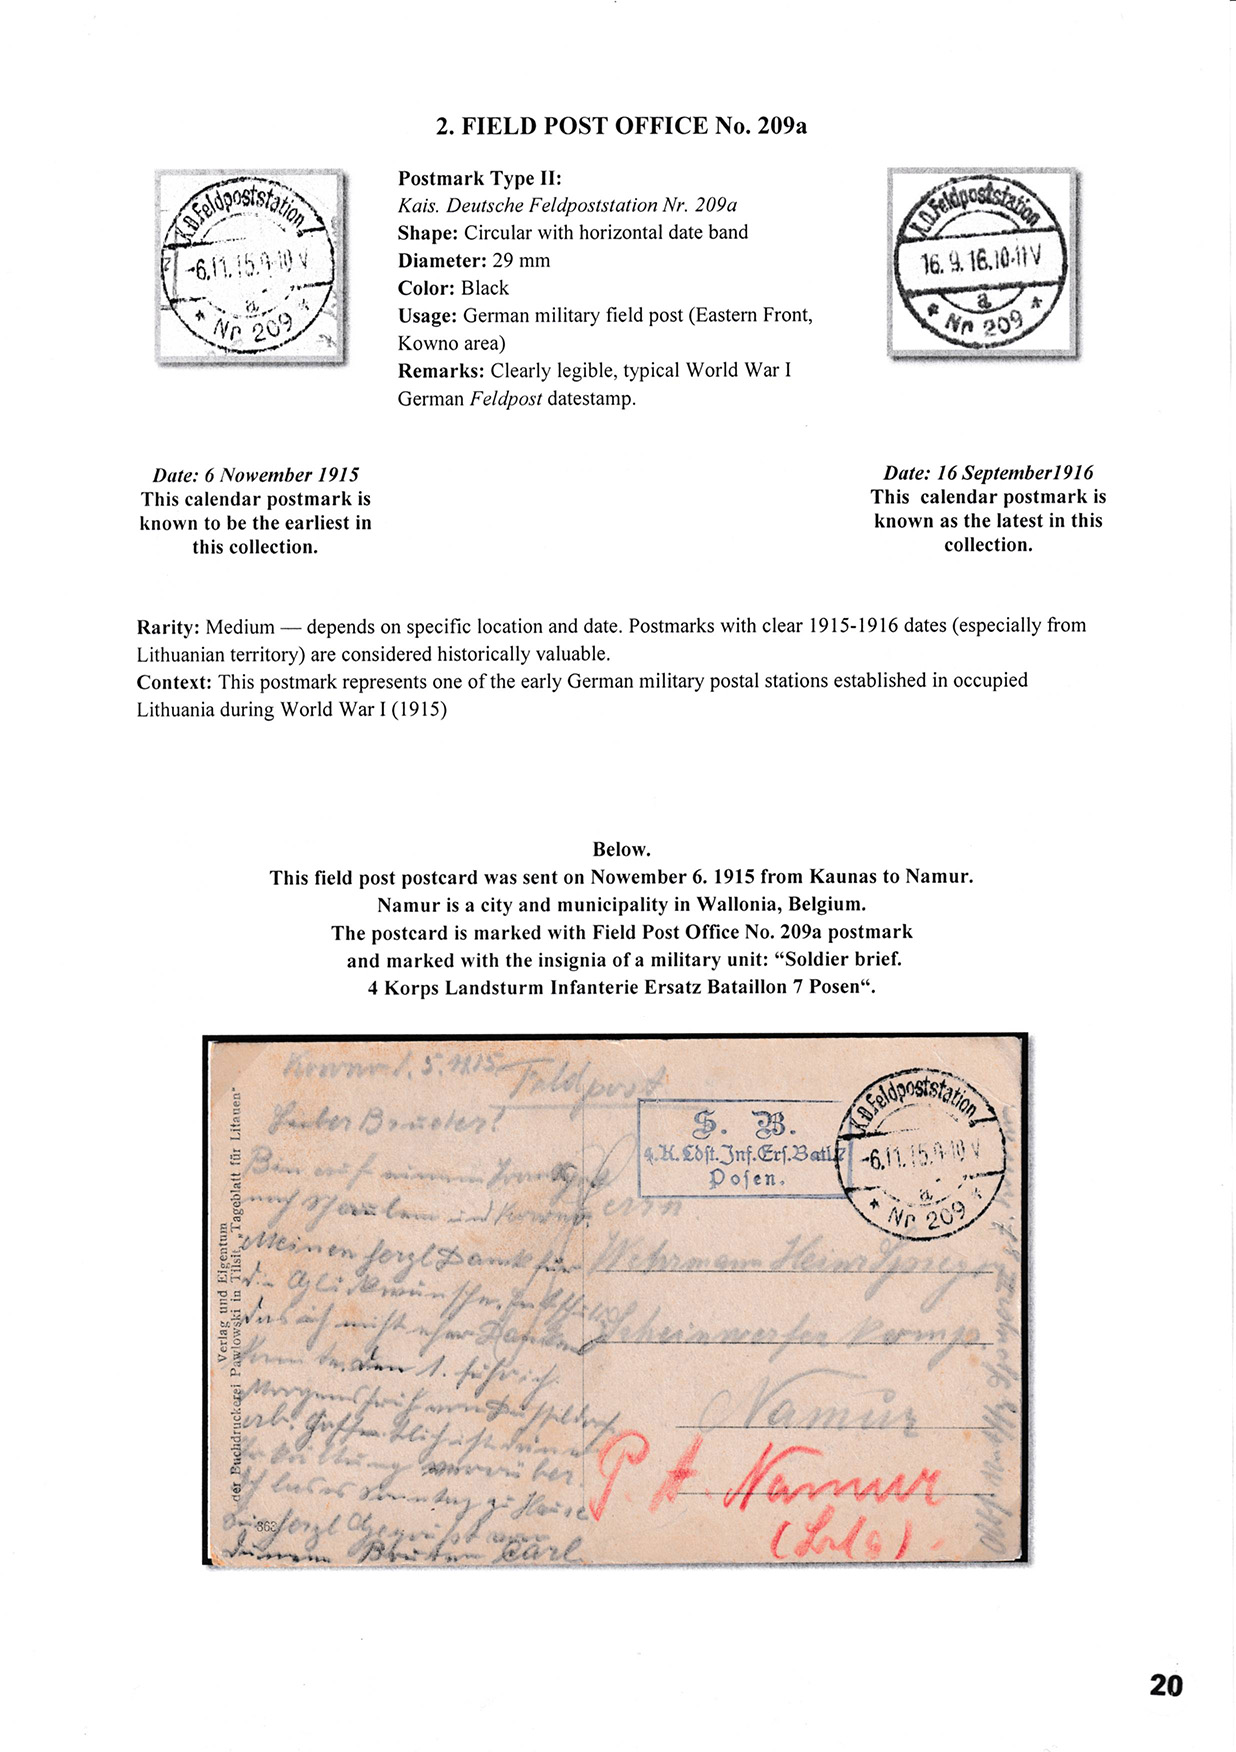 2. FIELD POST OFFICE No. 209a
K.D.Feldpoststation
-6.11.15.9-10 V
a
* Nr 209 *
Postmark Type II:
Kais. Deutsche Feldpoststation Nr. 209a
Shape: Circular with horizontal date band
Diameter: 29 mm
Color: Black
Usage: German military field post (Eastern Front,
Kowno area)
Remarks: Clearly legible, typical World War I
German Feldpost datestamp.
K.D.Feldpoststation
16.9.16.10-11 V
a
* Nr 209 *
Date: 6 Nowember 1915
This calendar postmark is
known to be the earliest in
this collection.
Date: 16 September1916
This calendar postmark is
known as the latest in this
collection.
Rarity: Medium — depends on specific location and date. Postmarks with clear 1915-1916 dates (especially from
Lithuanian territory) are considered historically valuable.
Context: This postmark represents one of the early German military postal stations established in occupied
Lithuania during World War I (1915)
Below.
This field post postcard was sent on Nowember 6. 1915 from Kaunas to Namur.
Namur is a city and municipality in Wallonia, Belgium.
The postcard is marked with Field Post Office No. 209a postmark
and marked with the insignia of a military unit: “Soldier brief.
4 Korps Landsturm Infanterie Ersatz Bataillon 7 Posen“.
Verlag und Eigentum
der Buchdruckerei Pawlowski in Tilsit, "Tageblatt für Litauen"
Feldpost
Lieber Bruder!
Bin auf einem
nach Schaulen und Kowno.
Meinen herzl Dank für
die Glückwünsche.
das ich nicht eher Danken
den 1. früh
Morgens früh von Düsseldorf
vorüber
Sonntag zu Hause
herzl
Carl
363
S. B.
4.K. Ldst. Inf. Ers. Batl. 7
Posen.
K.D.Feldpoststation
-6.11.15.9-10 V
a
* Nr 209 *
Wehrmann Heinr
Scheinwerfer
Namur
P. A. Namur
20